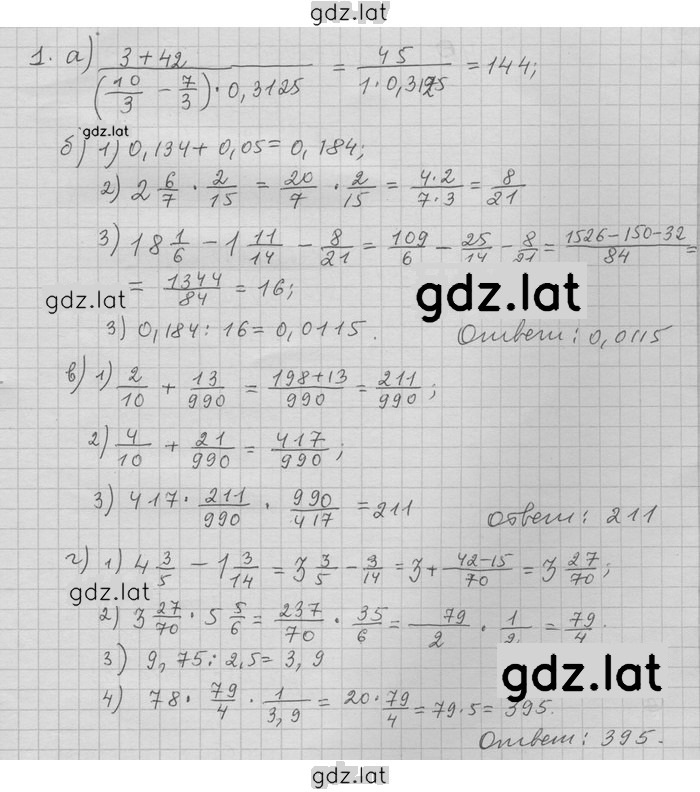 gdz.lat
1. а) (3+42)/((10/3 − 7/3)·0,3125) = 45/(1·0,3125) = 144;
gdz.lat
б) 1) 0,134+0,05=0,184;
2) 2 6/7 · 2/15 = 20/7 · 2/15 = (4·2)/(7·3) = 8/21
3) 18 1/6 − 1 11/14 − 8/21 = 109/6 − 25/14 − 8/21 = (1526−150−32)/84 =
= 1344/84 = 16;
gdz.lat
gdz.lat
3) 0,184 : 16 = 0,0115. Ответ: 0,0115
в) 1) 2/10 + 13/990 = (198+13)/990 = 211/990;
2) 4/10 + 21/990 = 417/990;
3) 417 · 211/990 · 990/417 = 211 Ответ: 211
г) 1) 4 3/5 − 1 3/14 = 3 3/5 − 3/14 = 3 + (42−15)/70 = 3 27/70;
gdz.lat
2) 3 27/70 · 5 5/6 = 237/70 · 35/6 = 79/2 · 1/2 = 79/4.
3) 9,75 : 2,5 = 3,9
gdz.lat
4) 78 · 79/4 · 1/3,9 = 20·79/4 = 79·5 = 395.
Ответ: 395.
gdz.lat